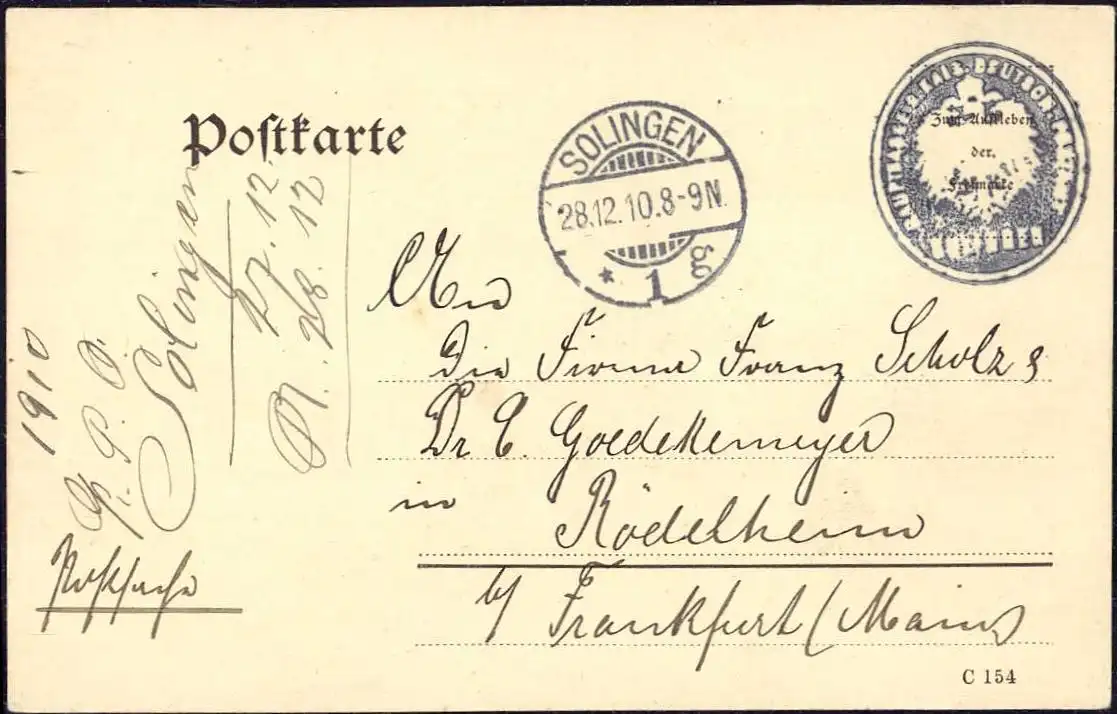 Postkarte
SOLINGEN
28.12.10.8-9N.
* 1 gg
DEUTSCH
Zum Aufkleben
der
Freimarke
An
die Firma Franz Scholz &
Dr C. Goedekemeyer
in Rödelheim
b/ Frankfurt (Main)
C 154
1910
Solingen
27.12
28. 12
Postsache